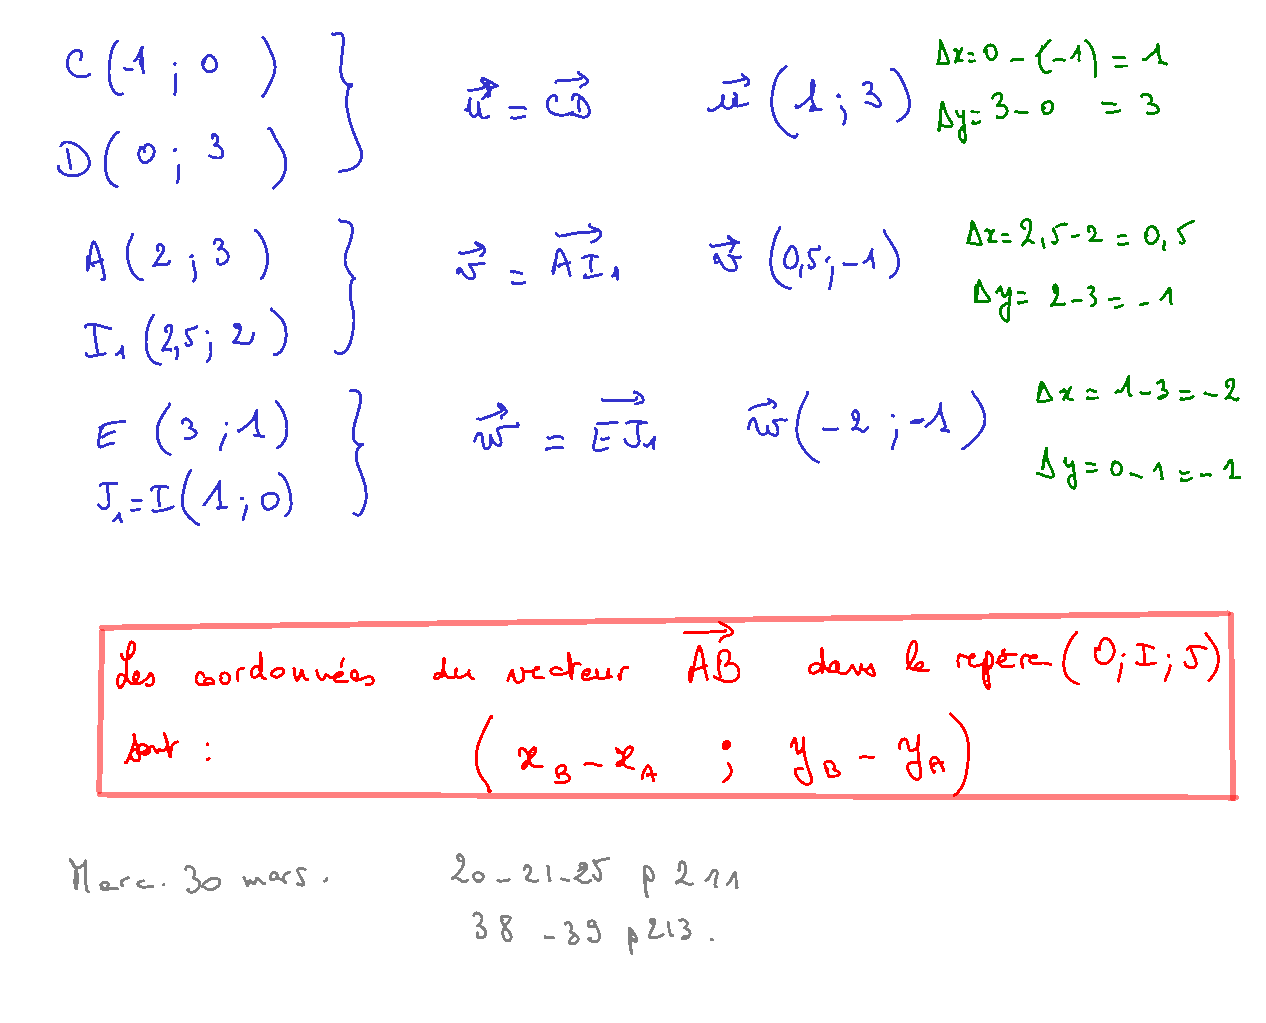 C(-1 ; 0)
D(0 ; 3)
u⃗ = CD⃗ u⃗ (1 ; 3)
Δx = 0 - (-1) = 1
Δy = 3 - 0 = 3
A(2 ; 3)
I₁(2,5 ; 2)
v⃗ = AI₁⃗ v⃗ (0,5 ; -1)
Δx = 2,5 - 2 = 0,5
Δy = 2 - 3 = -1
E (3 ; 1)
J₁ = I(1 ; 0)
w⃗ = EJ₁⃗ w⃗ (-2 ; -1)
Δx = 1 - 3 = -2
Δy = 0 - 1 = -1
Les coordonnées du vecteur AB⃗ dans le repère (O; I; J)
sont : (x_B - x_A ; y_B - y_A)
Merc. 30 mars. 20 - 21 - 25 p 211
38 - 39 p 213.